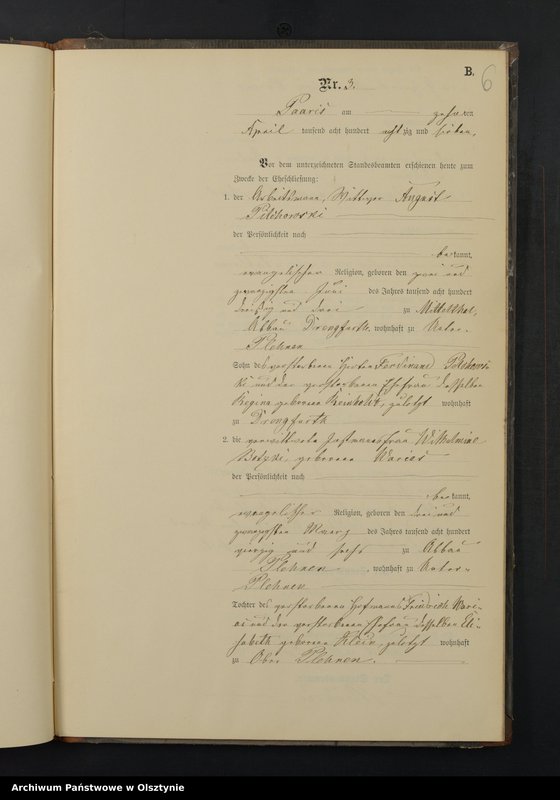 B.
6
Nr. 3.
Paaris am zehnten
April tausend acht hundert achtzig und sieben.
Vor dem unterzeichneten Standesbeamten erschienen heute zum
Zwecke der Eheschließung:
1. der Arbeitsmann, Wittwer August
Pelchowski
der Persönlichkeit nach
bekannt,
evangelischer Religion, geboren den zwei und
zwanzigsten Juni des Jahres tausend acht hundert
dreißig und drei zu Mittelthal,
Abbau Drengfurth, wohnhaft zu Unter-
Plehnen
Sohn des verstorbenen Hirten Ferdinand Pelchows-
ki und der verstorbenen Ehefrau desselben
Regina geborenen Reinholtz, zuletzt wohnhaft
zu Drengfurth
2. die verwittwete Hofmannsfrau Wilhelmine
geborene Waries
der Persönlichkeit nach
bekannt,
evangelischer Religion, geboren den drei und
zwanzigsten Maerz des Jahres tausend acht hundert
vierzig und sechs zu Abbau
Plehnen, wohnhaft zu Unter-
Plehnen
Tochter des verstorbenen Hofmanns Friedrich Wari-
es und der verstorbenen Ehefrau desselben Eli-
sabeth geborenen Klein, zuletzt wohnhaft
zu Ober Plehnen.
Archiwum Państwowe w Olsztynie